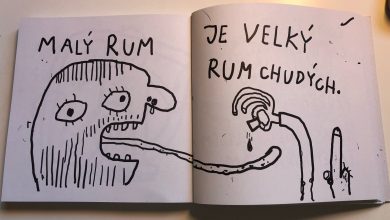 MALÝ RUM
JE VELKÝ
RUM CHUDÝCH.